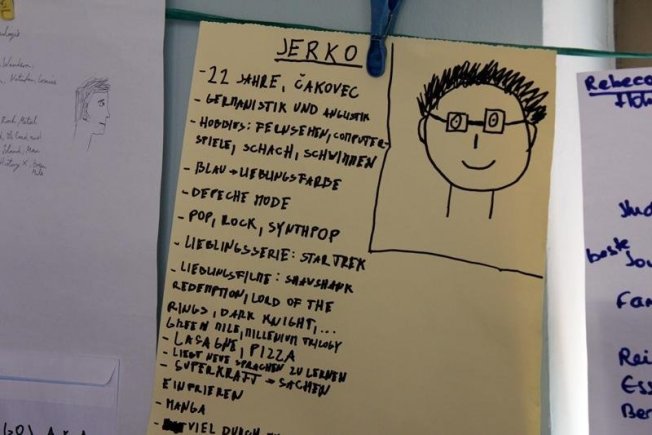 JERKO
- 22 JAHRE, ČAKOVEC
- GERMANISTIK UND ANGLISTIK
- HOBBIES: FERNSEHEN, COMPUTER-
SPIELE, SCHACH, SCHWIMMEN
- BLAU → LIEBLINGSFARBE
- DEPECHE MODE
- POP, ROCK, SYNTHPOP
- LIEBLINGSSERIE: STAR TREK
- LIEBLINGSFILME: SHAWSHANK
REDEMPTION, LORD OF THE
RINGS, DARK KNIGHT, ...
GREEN MILE, MILLENIUM TRILOGY
- LASAGNE, PIZZA
- LIEBT NEUE SPRACHEN ZU LERNEN
- SUPERKRAFT → SACHEN
EINFRIEREN
- MANGA
VIEL DURCH
Rebecc
beste
Fam
Rei
Ess
Ber